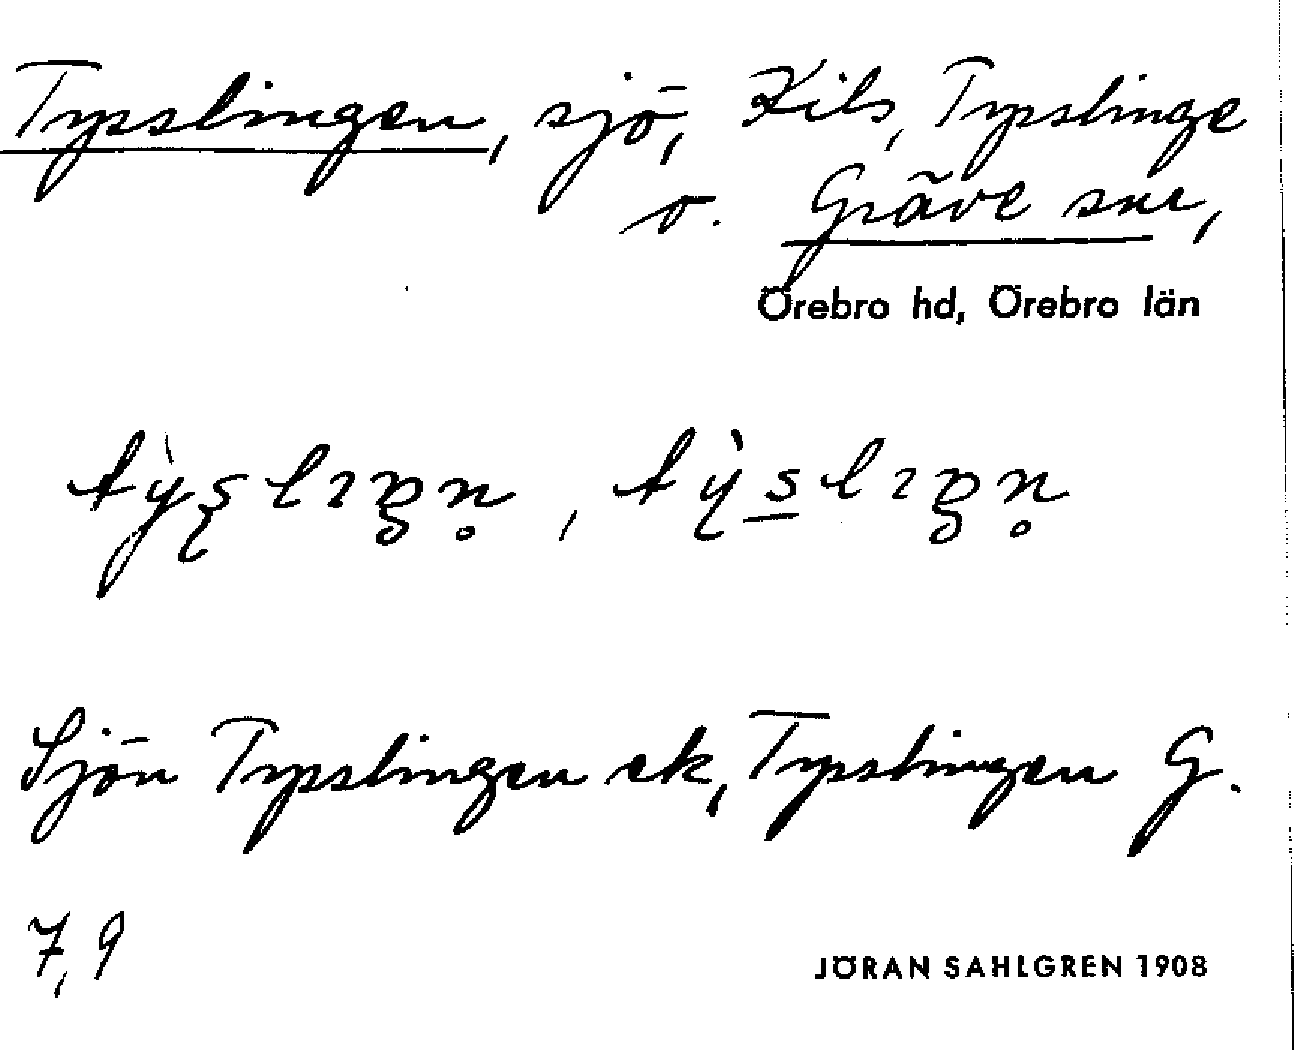 Tysslingen, sjö, Kils, Tysslinge
o. Gräve snr,
Örebro hd, Örebro län
Sjön Tysslingen ek, Tysslingen G.
7, 9
JÖRAN SAHLGREN 1908